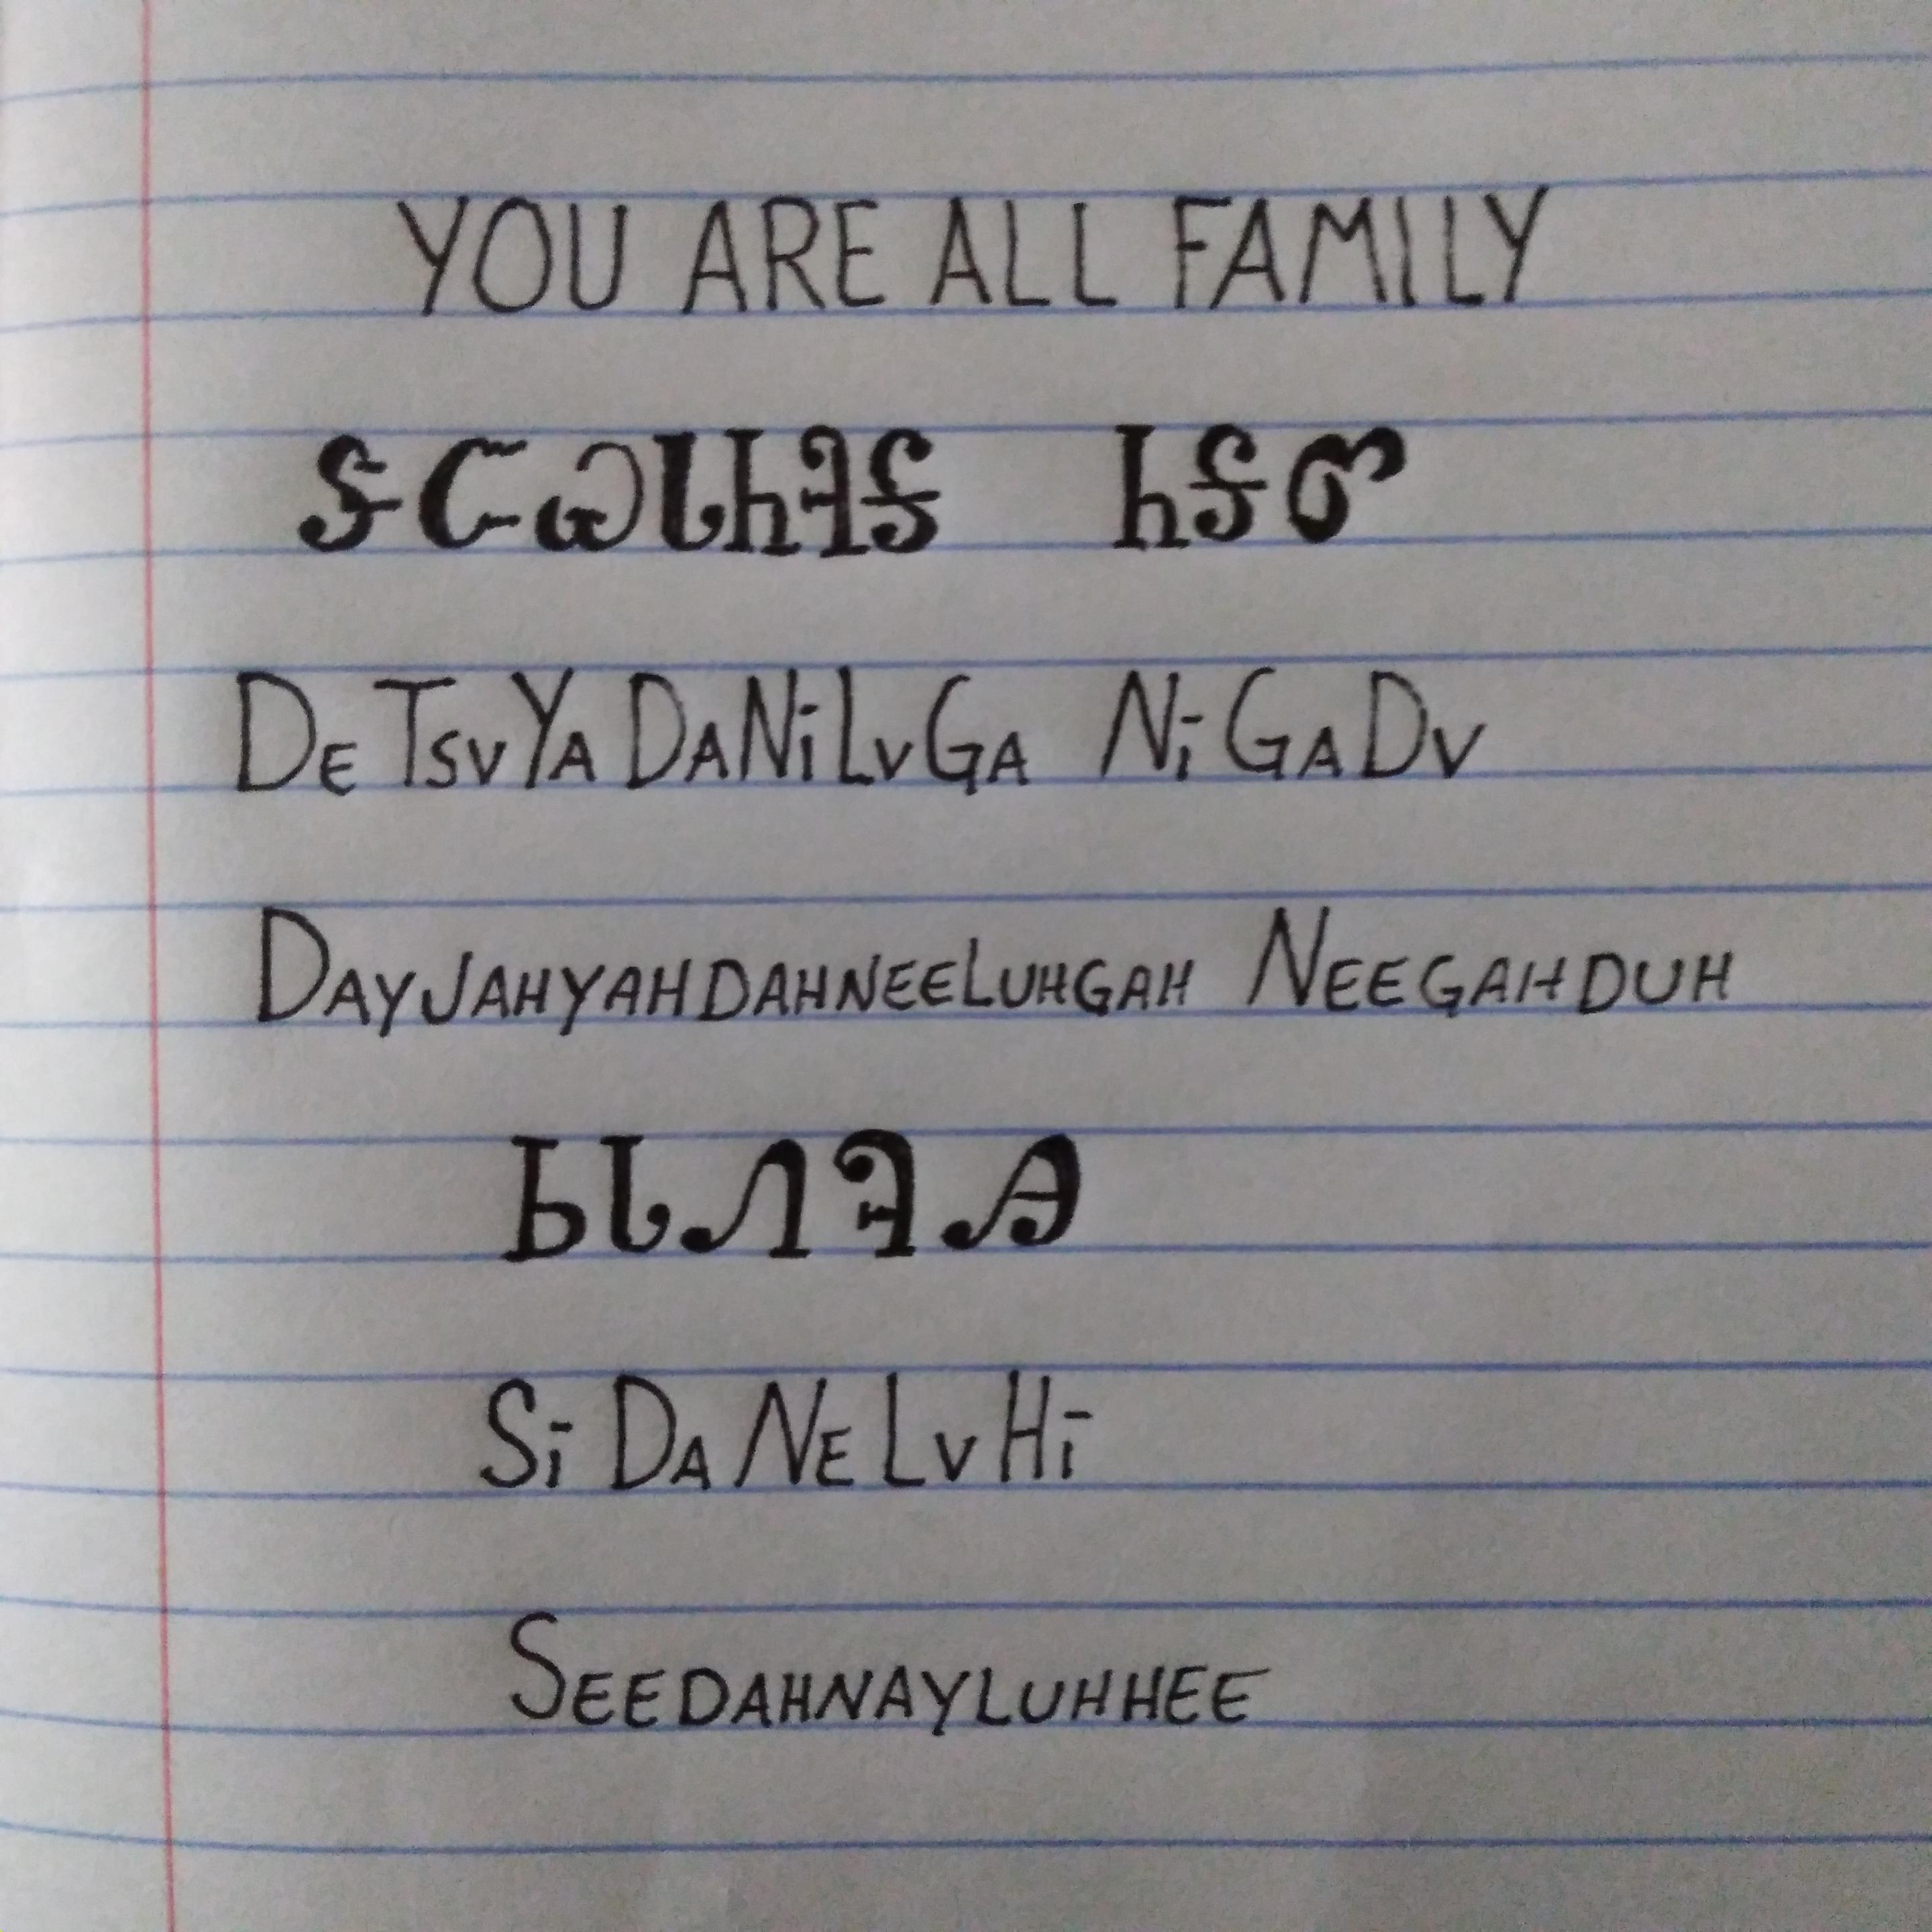 YOU ARE ALL FAMILY
ᏕᏨᏯᏓᏂᎸᎦ ᏂᎦᏛ
DETSVYADANiLVGA NiGADV
DAYJAHYAHDAHNEELUHGAH NEEGAHDUH
ᏏᏓᏁᎸᎯ
SiDANELVHi
SEEDAHNAYLUHHEE